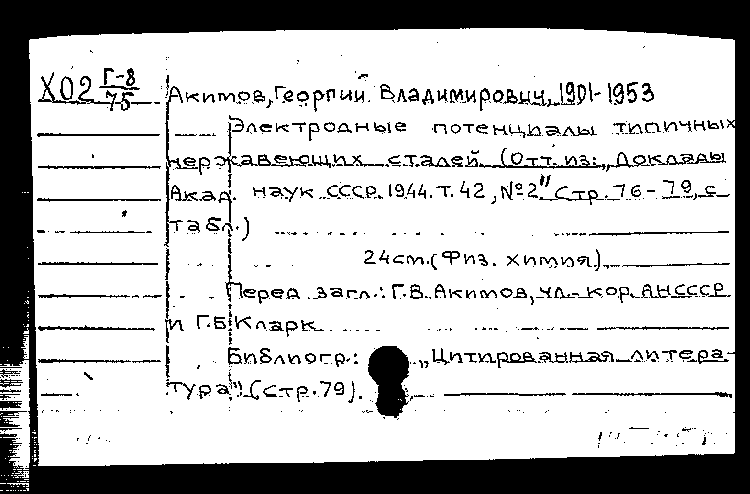 Х02 Г-8/75
Акимов, Георгий Владимирович, 1901-1953
Электродные потенциалы типичных
нержавеющих сталей (Отт. из: „Доклады
Акад. наук СССР. 1944. Т. 42, №2" Стр. 76-79, с
табл.)
24 cm. (Физ. химия)
Перед загл.: Г.В. Акимов, чл.-кор. АНСССР
и Г.Б. Кларк
Библиогр.: „Цитированная литера-
тура") (стр. 79).